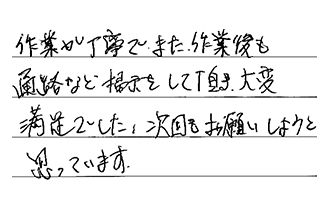 作業が丁寧で、また、作業後も
通路など掃除をして頂き、大変
満足でした。次回もお願いしようと
思っています。